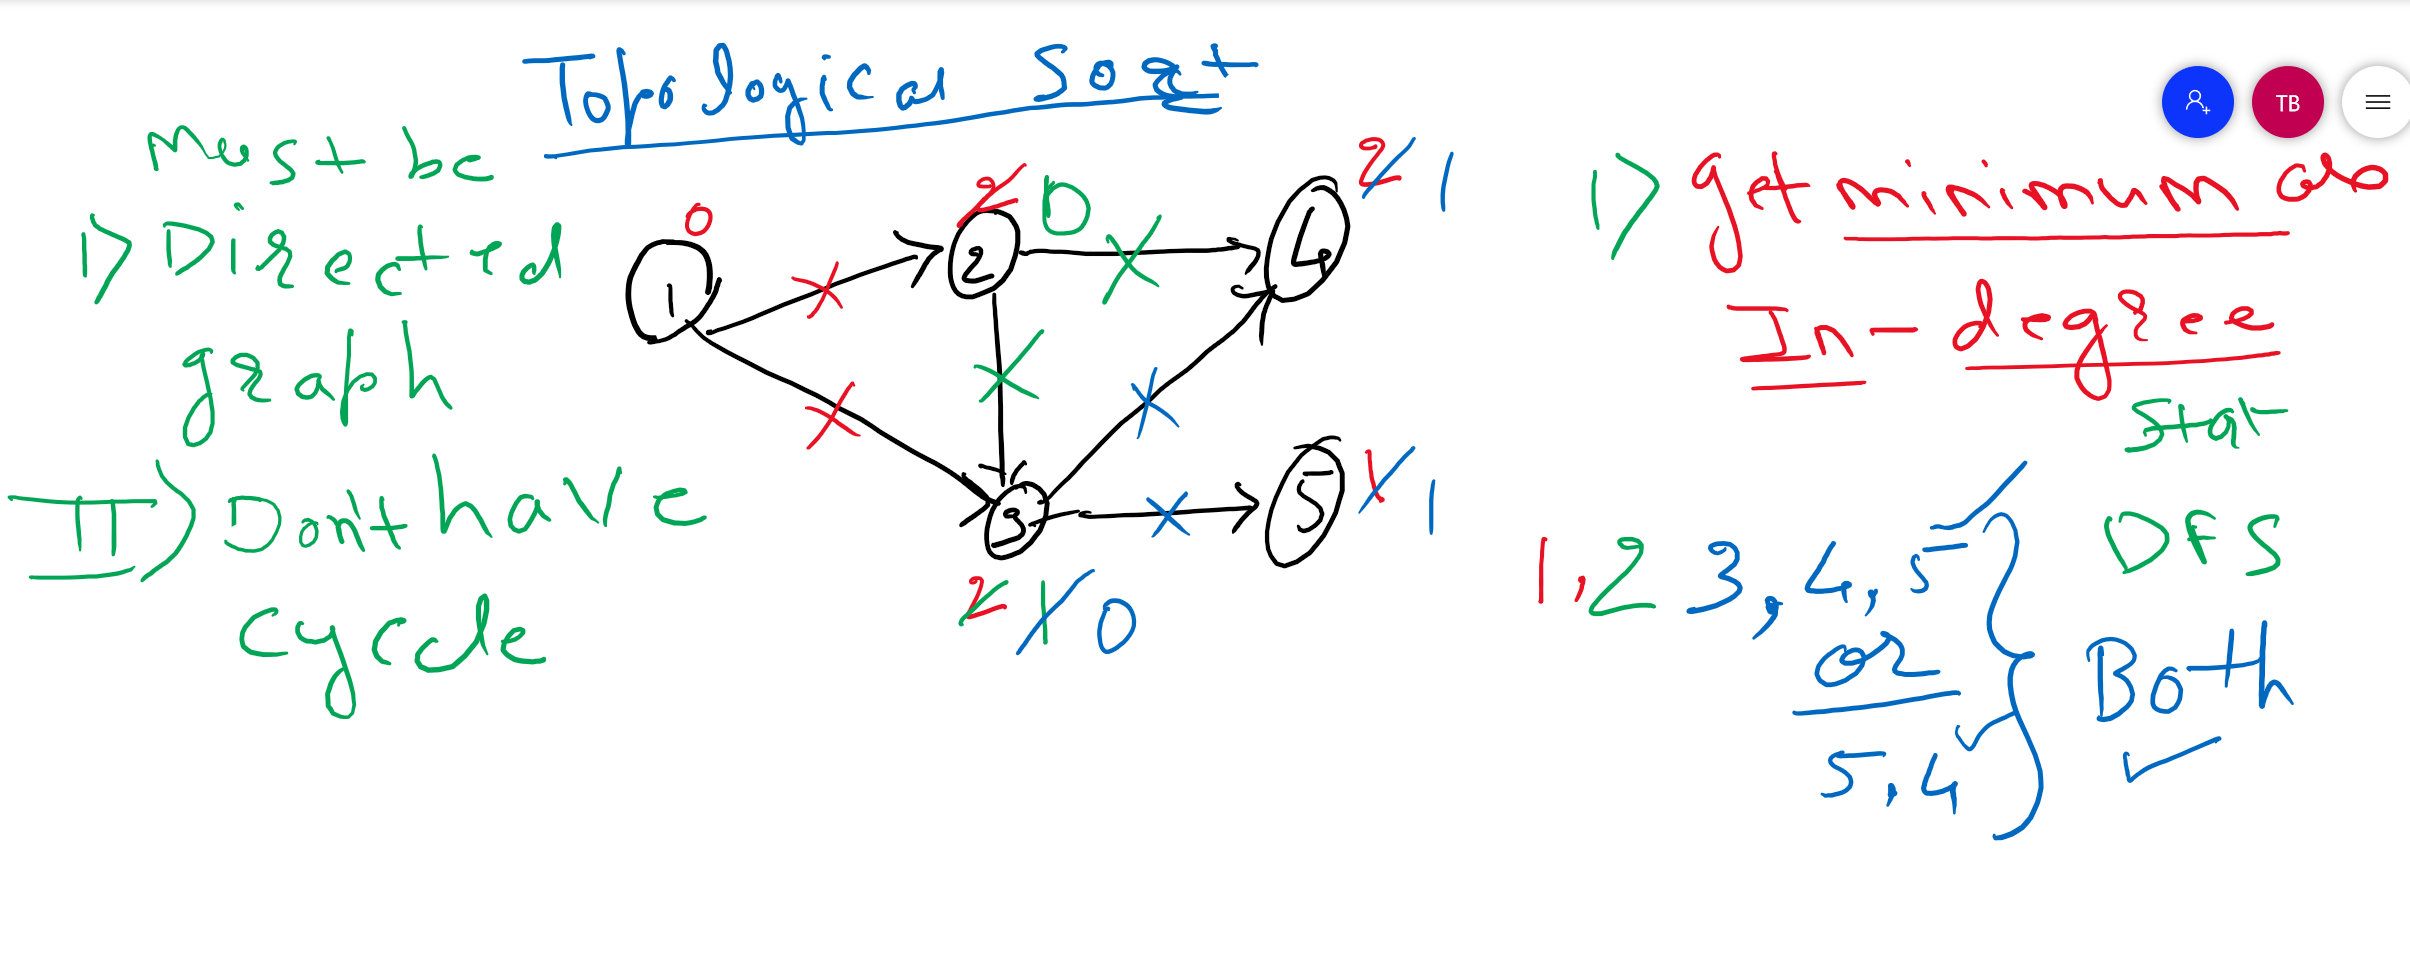 Topological Sort
TB
Must be
1) Directed
graph
II) Don't have
cycle
0
2 0
2 1
1
2
4
3
5
1 1
2 1 0
1) get minimum
In-degree
Stat
DFS
1, 2 3, 4, 5
or
5, 4
Both